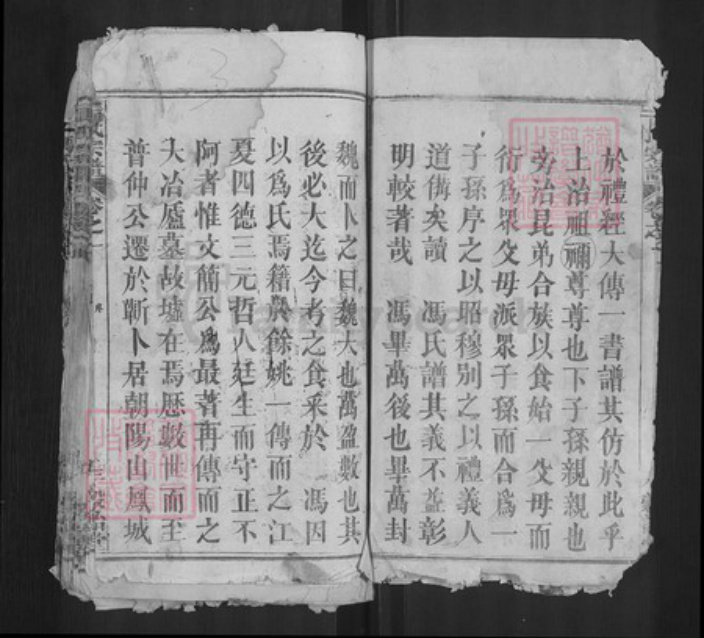 於禮經大傳一書譜其仿於此乎
上治祖禰尊尊也下子孫親親也
旁治昆弟合族以食始一父母而
衍為眾父母派眾子孫而合為一
子孫序之以昭穆別之以禮義人
道備矣讀　馮氏譜其義不益彰
明較著哉　馮畢萬後也畢萬封
魏而卜之曰魏大也萬盈數也其
後必大迄今考之食采於　馮因
以為氏焉籍於餘姚一傳而之江
夏四德三元哲人廷生而守正不
阿者惟文簡公為最著再傳而之
大冶廬墓故墟在焉歷數世而至
普仲公遷於蘄卜居朝陽山鳳城